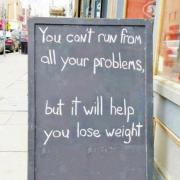 You can't run from
all your problems,
but it will help
you lose weight